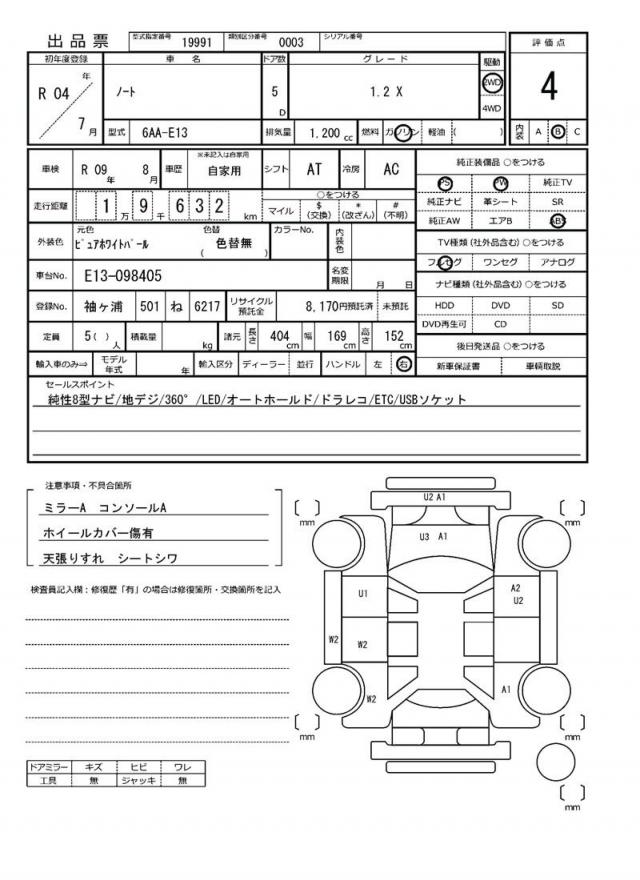 出品票 型式指定番号 19991 類別区分番号 0003 シリアル番号
評価点
4
内装 A B C
初年度登録 車名 ドア数 グレード 駆動
R 04 年 7 月
ノート 5 D 1.2 X 2WD 4WD
型式 6AA-E13 排気量 1.200 cc 燃料 ガソリン 軽油 ( )
車検 R 09 年 8 月 車歴 ※未記入は自家用 自家用 シフト AT 冷房 AC
走行距離 1 万 9 千 6 3 2 km ○をつける
マイル $ (交換) * (改ざん) # (不明)
外装色 元色 ピュアホワイトパール 色替 ( 色替無 ) カラーNo. 内装色
車台No. E13-098405 名変期限 月 日
登録No. 袖ヶ浦 501 ね 6217 リサイクル預託金 8,170円預託済 未預託
定員 5( ) 人 積載量 kg 諸元 長さ 404 cm 幅 169 cm 高さ 152 cm
輸入車のみ⇒ モデル年式 年 輸入区分 ディーラー 並行 ハンドル 左 右
純正装備品 ○をつける
PS PW 純正TV
純正ナビ 革シート SR
純正AW エアB ABS
TV種類(社外品含む)○をつける
フルセグ ワンセグ アナログ
ナビ種類(社外品含む)○をつける
HDD DVD SD
DVD再生可 CD
後日発送品 ○をつける
新車保証書 車輌取説
セールスポイント
純性8型ナビ/地デジ/360°/LED/オートホールド/ドラレコ/ETC/USBソケット
注意事項・不具合箇所
ミラーA コンソールA
ホイールカバー傷有
天張りすれ シートシワ
検査員記入欄：修復歴「有」の場合は修復箇所・交換箇所を記入
ドアミラー キズ ヒビ ワレ
工具 無 ジャッキ 無
U2 A1
mm mm
U3 A1
U1 A2
U2
W2 W2
W2 A1
mm mm
mm